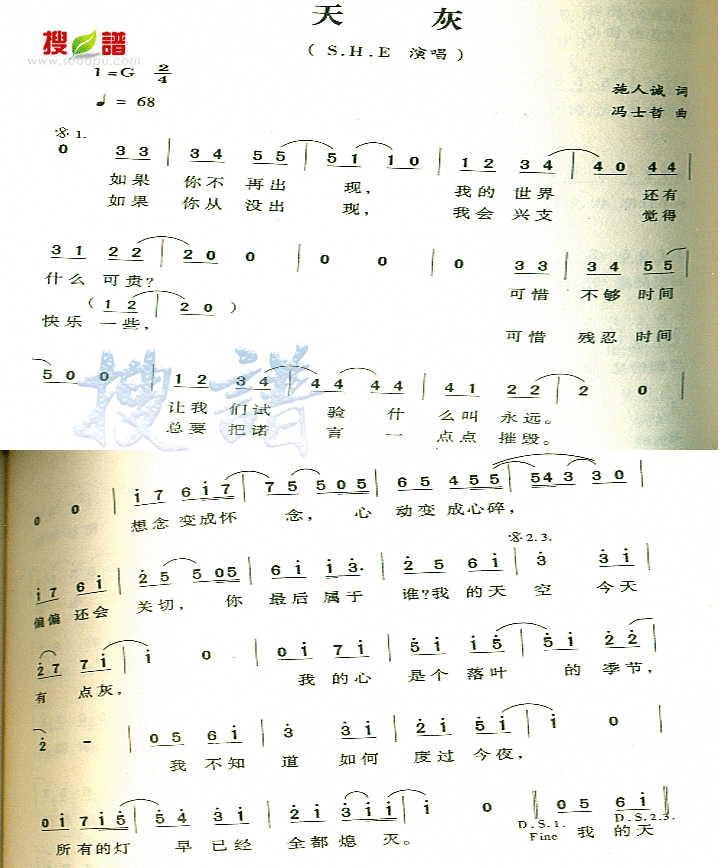 天 灰
搜 譜
www.sooopu.com
( S.H.E 演唱 )
1=G 2/4
♩ = 68
施人诚 词
冯士哲 曲
𝄋 1.
0 3 3 | 3 4 5 5 | 5 1 1 0 | 1 2 3 4 | 4 0 4 4 |
如果 你不 再出 现, 我的 世界 还有
如果 你从 没出 现, 我会 兴支 觉得
3 1 2 2 | 2 0 0 | 0 0 | 0 3 3 | 3 4 5 5 |
什么 可贵? 可惜 不够 时间
( 1 2 | 2 0 )
快乐 一些, 可惜 残忍 时间
5 0 0 | 1 2 3 4 | 4 4 4 4 | 4 1 2 2 | 2 0 |
让我 们试 验 什 么叫 永远。
总要 把诺 言 一 点点 摧毁。
搜 譜
0 0 | i 7 6 i 7 | 7 5 5 0 5 | 6 5 4 5 5 | 5 4 3 3 0 |
想念 变成怀 念, 心 动变 成心碎,
𝄋 2.3.
i 7 6 i | 2 5 5 0 5 | 6 i i 3· | 2 5 6 i | 3 3 i |
偏偏 还会 关切, 你 最后 属于 谁?我 的天 空 今天
2 7 7 i | i 0 | 0 i 7 i | 5 i i 5 | 5 i 2 2 |
有 点灰, 我 的心 是个 落叶 的 季节,
2 - | 0 5 6 i | 3 3 i | 2 i 5 i | i 0 |
我 不知 道 如何 度过 今夜,
0 i 7 i 5 | 5 4 3 i | 2 i 3 i i | i 0 | 0 5 6 i |
所有的灯 早 已经 全都 熄 灭。 D.S.1. Fine 我 的天 D.S.2.3.